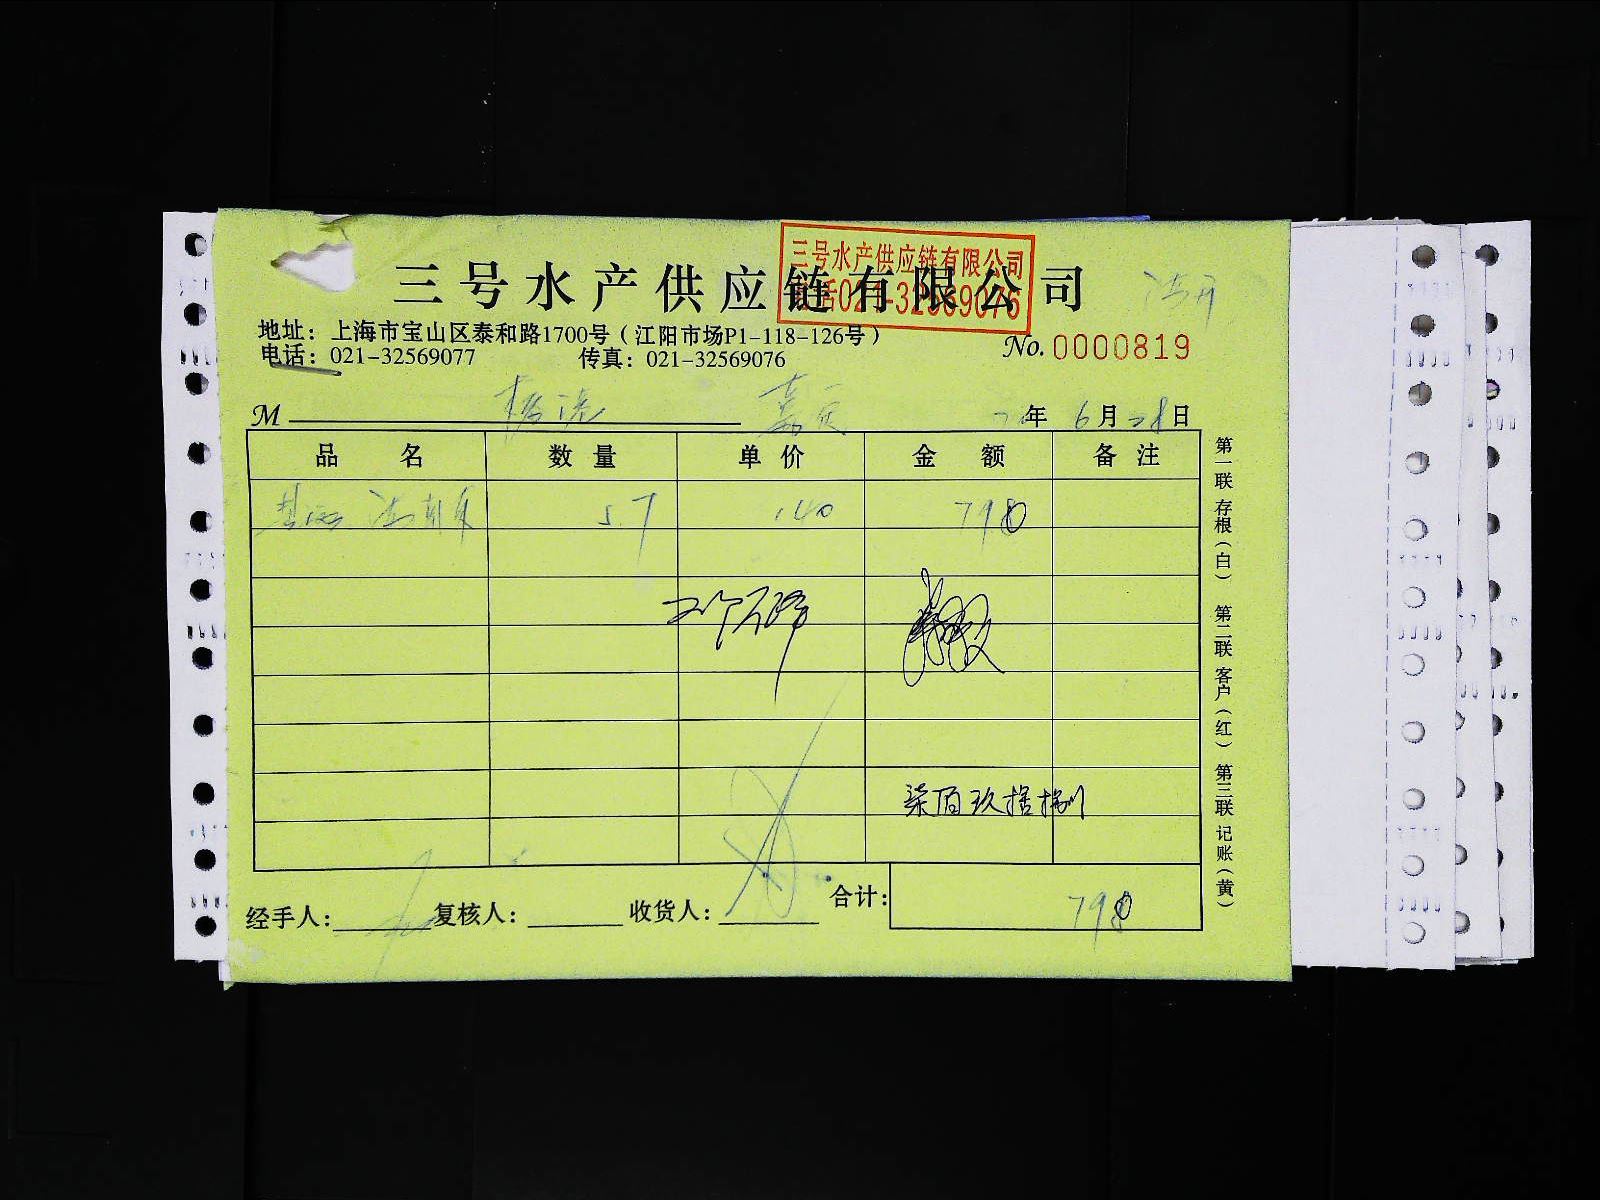 三号水产供应链有限公司
三号水产供应链有限公司
电话021-32569076
地址：上海市宝山区泰和路1700号（江阳市场P1-118-126号）
电话：021-32569077 传真：021-32569076
No. 0000819
M 年 6月28日
品名 数量 单价 金额 备注
5.7 140 798
柒佰玖拾捌
经手人： 复核人： 收货人： 合计： 798
第一联 存根（白） 第二联 客户（红） 第三联 记账（黄）